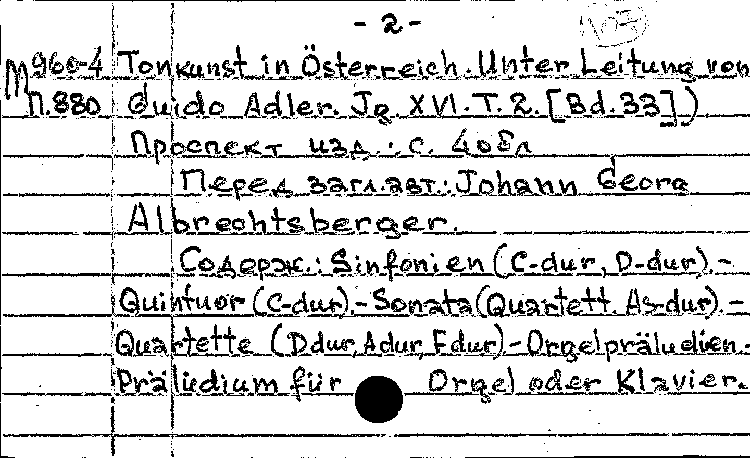 - 2 -
М960-4 Tonkunst in Österreich. Unter Leitung von
П.880 Guido Adler. Jg. XVI. T. 2. [Bd. 33])
Проспект изд.: с. 4 обл
Перед загл. авт.: Johann Georg
Albrechtsberger.
Содерж.: Sinfonien (C-dur, D-dur). -
Quintuor (C-dur). - Sonata (Quartett. As-dur). -
Quartette (D dur, A dur, F dur) - Orgelpräludien. -
Präludium für Orgel oder Klavier.